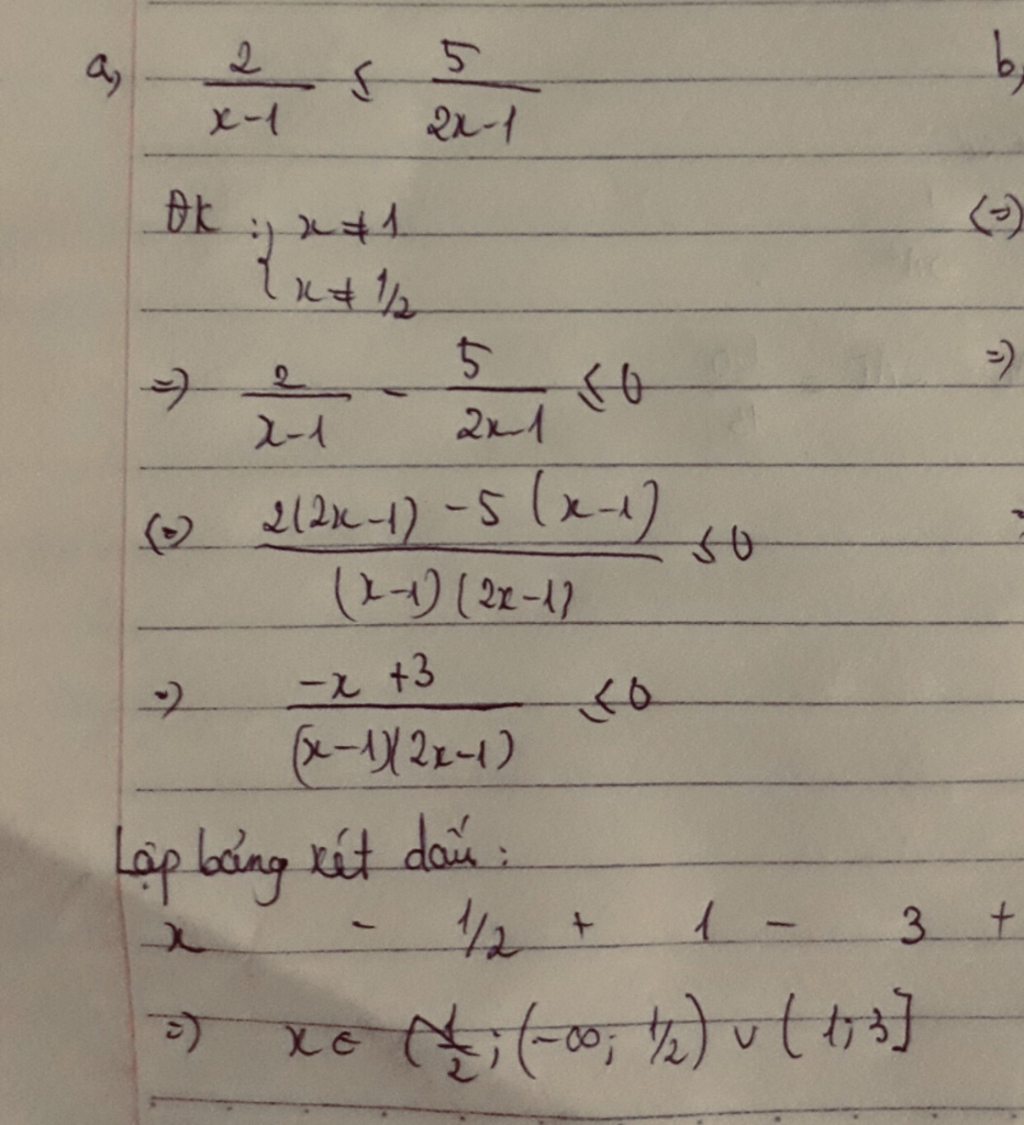 a, 2/(x-1) ≤ 5/(2x-1) b,
ĐK : { x ≠ 1 (=)
x ≠ 1/2
=) 2/(x-1) - 5/(2x-1) ≤ 0 =)
(=) (2(2x-1) - 5(x-1))/((x-1)(2x-1)) ≤ 0
=) (-x +3)/((x-1)(2x-1)) ≤ 0
Lập bảng xét dấu :
x - 1/2 + 1 - 3 +
=) x ∈ (-∞; 1/2) ∪ (1; 3]